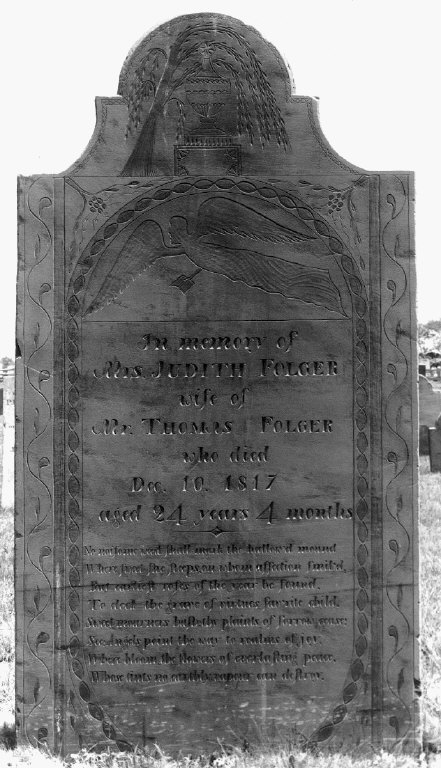 In memory of
Mrs JUDITH FOLGER
wife of
Mr. THOMAS FOLGER
who died
Dec. 10. 1817
aged 24 years 4 months
No noisome weed shall mark the hallow'd mound
Where sweet she sleeps on whom affection smil'd,
But earliest roses of the year be found,
To deck the grave of virtues fav'rite child.
Sweet mourners hush the plaints of sorrow cease;
See Angels point the way to realms of joy,
Where bloom the flowers of everlasting peace,
Whose tints no earthly vapour can destroy.